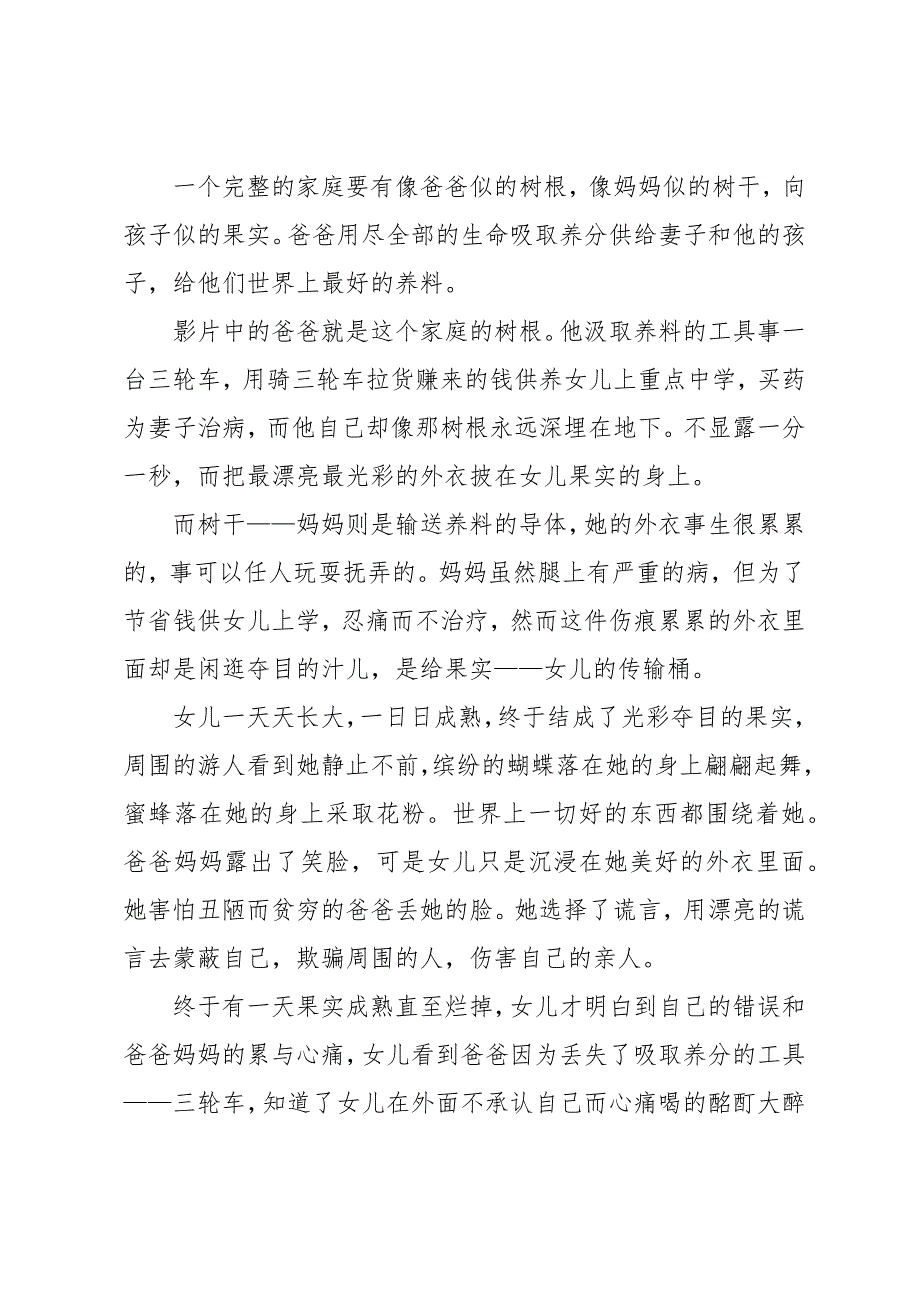 一个完整的家庭要有像爸爸似的树根，像妈妈似的树干，向
孩子似的果实。爸爸用尽全部的生命吸取养分供给妻子和他的孩
子，给他们世界上最好的养料。
影片中的爸爸就是这个家庭的树根。他汲取养料的工具事一
台三轮车，用骑三轮车拉货赚来的钱供养女儿上重点中学，买药
为妻子治病，而他自己却像那树根永远深埋在地下。不显露一分
一秒，而把最漂亮最光彩的外衣披在女儿果实的身上。
而树干——妈妈则是输送养料的导体，她的外衣事生很累累
的，事可以任人玩耍抚弄的。妈妈虽然腿上有严重的病，但为了
节省钱供女儿上学，忍痛而不治疗，然而这件伤痕累累的外衣里
面却是闲逛夺目的汁儿，是给果实——女儿的传输桶。
女儿一天天长大，一日日成熟，终于结成了光彩夺目的果实，
周围的游人看到她静止不前，缤纷的蝴蝶落在她的身上翩翩起舞，
蜜蜂落在她的身上采取花粉。世界上一切好的东西都围绕着她。
爸爸妈妈露出了笑脸，可是女儿只是沉浸在她美好的外衣里面。
她害怕丑陋而贫穷的爸爸丢她的脸。她选择了谎言，用漂亮的谎
言去蒙蔽自己，欺骗周围的人，伤害自己的亲人。
终于有一天果实成熟直至烂掉，女儿才明白到自己的错误和
爸爸妈妈的累与心痛，女儿看到爸爸因为丢失了吸取养分的工具
——三轮车，知道了女儿在外面不承认自己而心痛喝的酩酊大醉